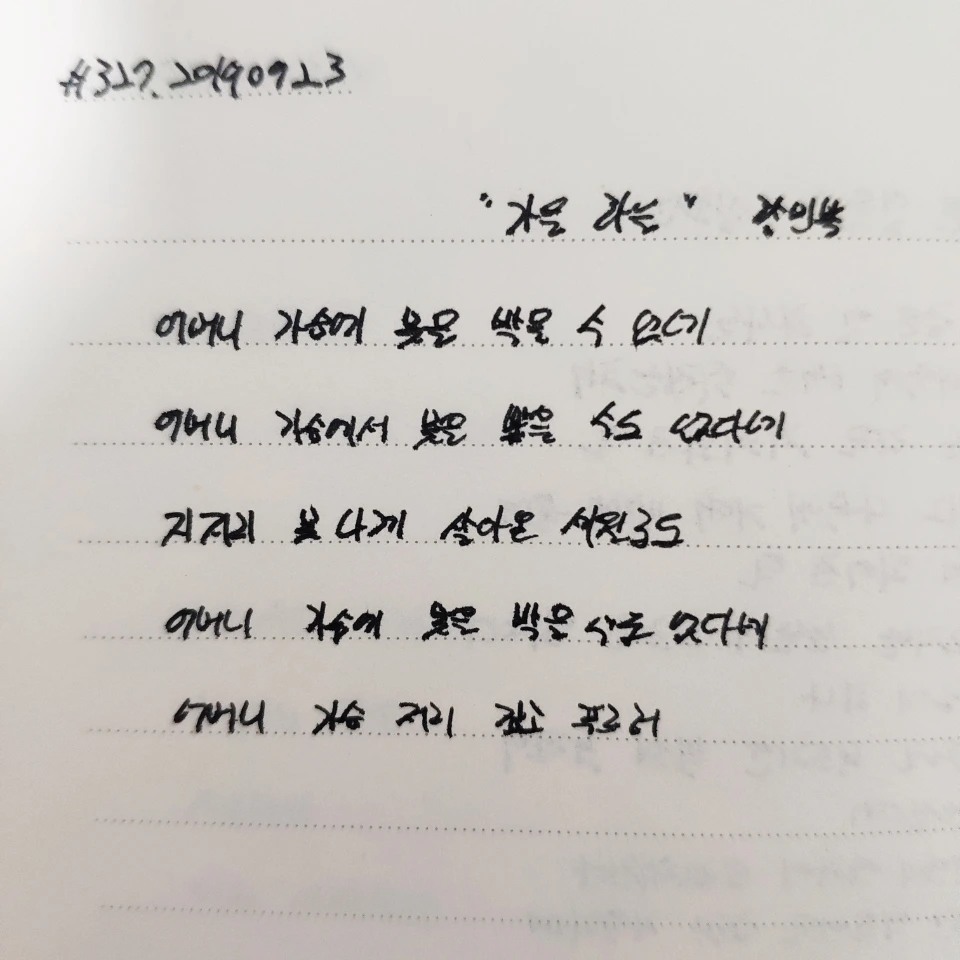 #327. 20190923
"가을 하늘" 함민복
어머니 가슴에 못을 박을 수 없네
어머니 가슴에서 못을 뽑을 수도 없다네
지지리 못나게 살아온 세월로도
어머니 가슴에 못을 박을 수도 없다네
어머니 가슴 저리 깊고 푸르러